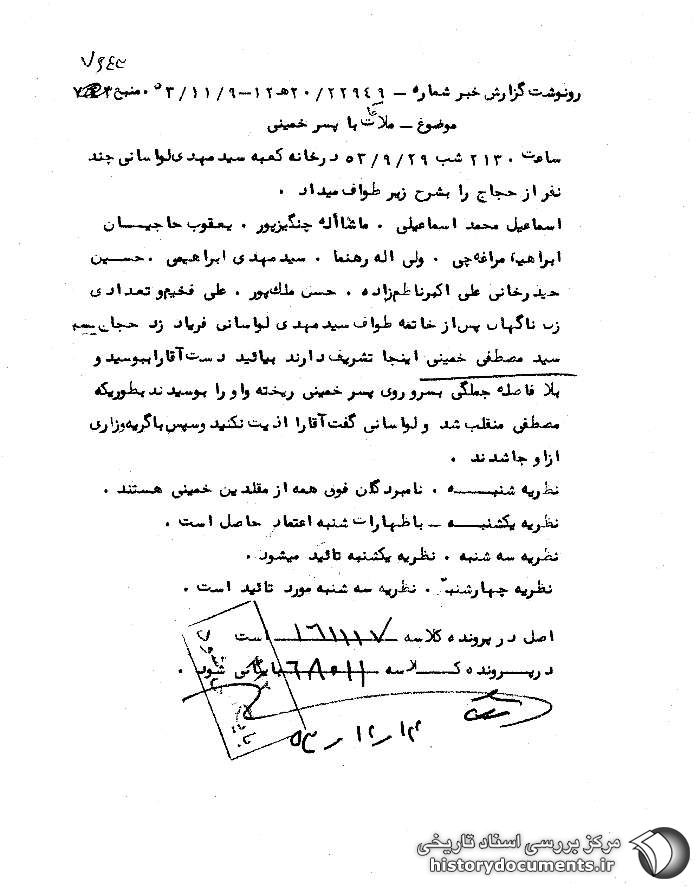 ۷۹۴۳
رونوشت گزارش خبر شماره – ۲۲۹۴۹/ ۲۰هـ۱۲–۵۳/۱۱/۹ . منبع
موضوع – ملاقات با پسر خمینی
ساعت ۲۱۳۰ شب ۵۳/۹/۲۹ در خانه کعبه سید مهدی لواسانی چند
نفر از حجاج را بشرح زیر طواف میداد .
اسماعیل محمد اسماعیلی . ماشااله چنگیزپور . یعقوب حاجیان
ابراهیم مراغه‌چی . ولی اله رهنما . سید مهدی ابراهیمی . حسین
حیدرخانی علی اکبر ناظم‌زاده . حسن ملک‌پور . علی فخیم و تعدادی
زن ناگهان پس از خاتمه طواف سید مهدی لواسانی فریاد زد حجاج
سید مصطفی خمینی اینجا تشریف دارند بیائید دست آقا را ببوسید و
بلا فاصله جملگی بسر و روی پسر خمینی ریخته و او را بوسیدند بطوریکه
مصطفی منقلب شد و لواسانی گفت آقا را اذیت نکنید و سپس با گریه و زاری
از او جدا شدند .
نظریه شنبه . نامبردگان فوق همه از مقلدین خمینی هستند .
نظریه یکشنبه – باظهارات شنبه اعتماد حاصل است .
نظریه سه شنبه . نظریه یکشنبه تائید میشود .
نظریه چهارشنبه . نظریه سه شنبه مورد تائید است .
اصل در پرونده کلاسه ۱۶۱۱۱۷ است
در پرونده کلاسه ۶۸۰۱۱ بایگانی شود .
بایگانی شود
۵۳/۱۲/۱۴
مرکز بررسی اسناد تاریخی
historydocuments.ir